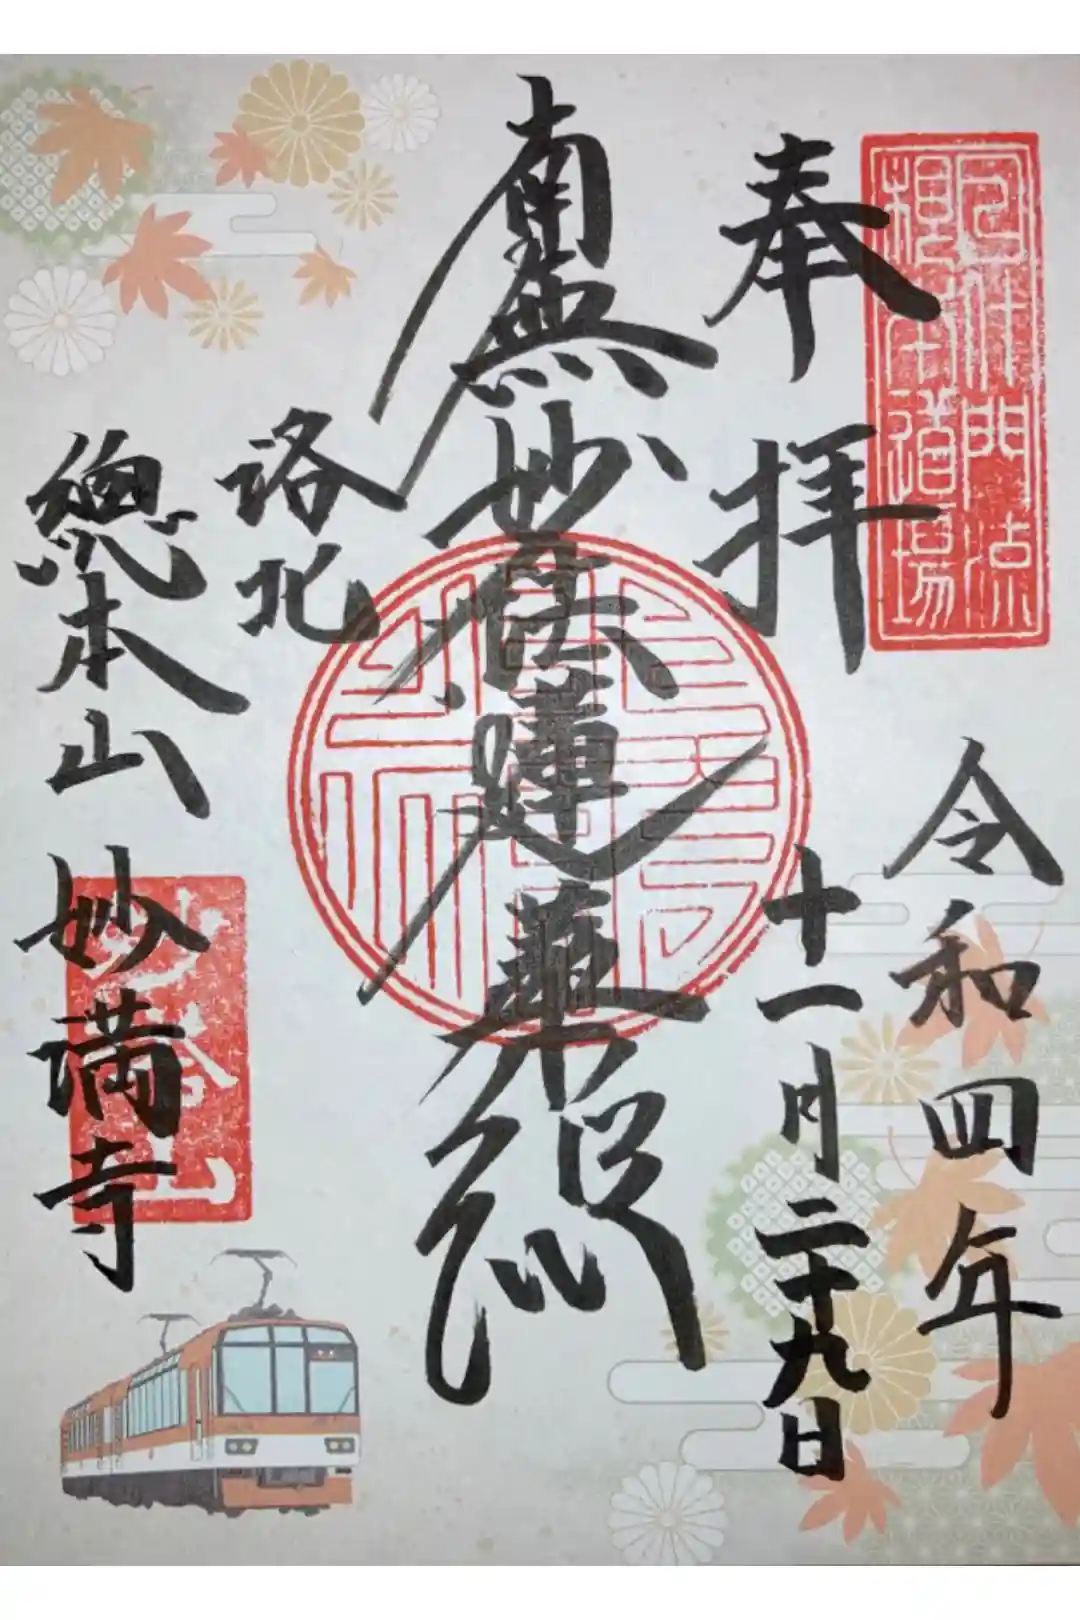 奉拝
令和四年
十一月二十九日
南無妙法蓮華経
洛北
總本山 妙満寺